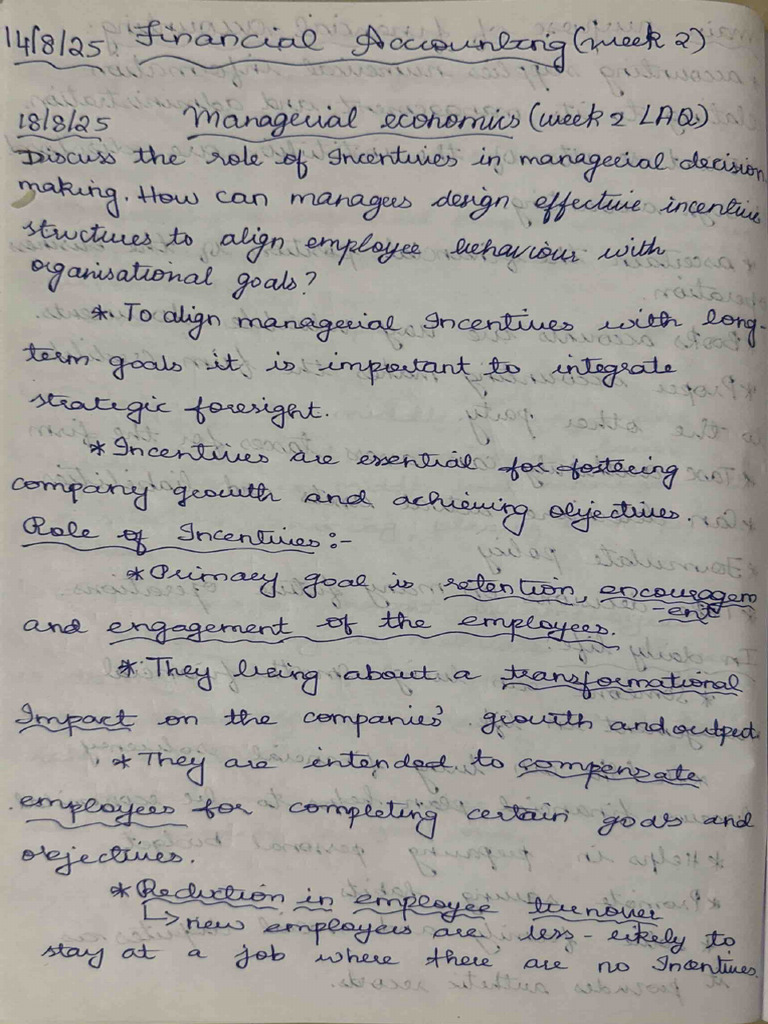 14/8/25 Financial Accounting (week 2)
18/8/25 Managerial economics (week 2 LAQ)
Discuss the role of Incentives in managerial decision
making. How can managers design effective incentive
structures to align employee behaviour with
organisational goals?
* To align managerial Incentives with long-
term goals it is important to integrate
strategic foresight.
* Incentives are essential for fostering
company growth and achieving objectives.
Role of Incentives :-
* Primary goal is retention, encouragem
-ent
and engagement of the employees.
* They bring about a transformational
Impact on the companies' growth and output
* They are intended to compensate
employees for completing certain goals and
objectives.
* Reduction in employee turnover
↳ new employees are less - likely to
stay at a job where there are no Incentives.